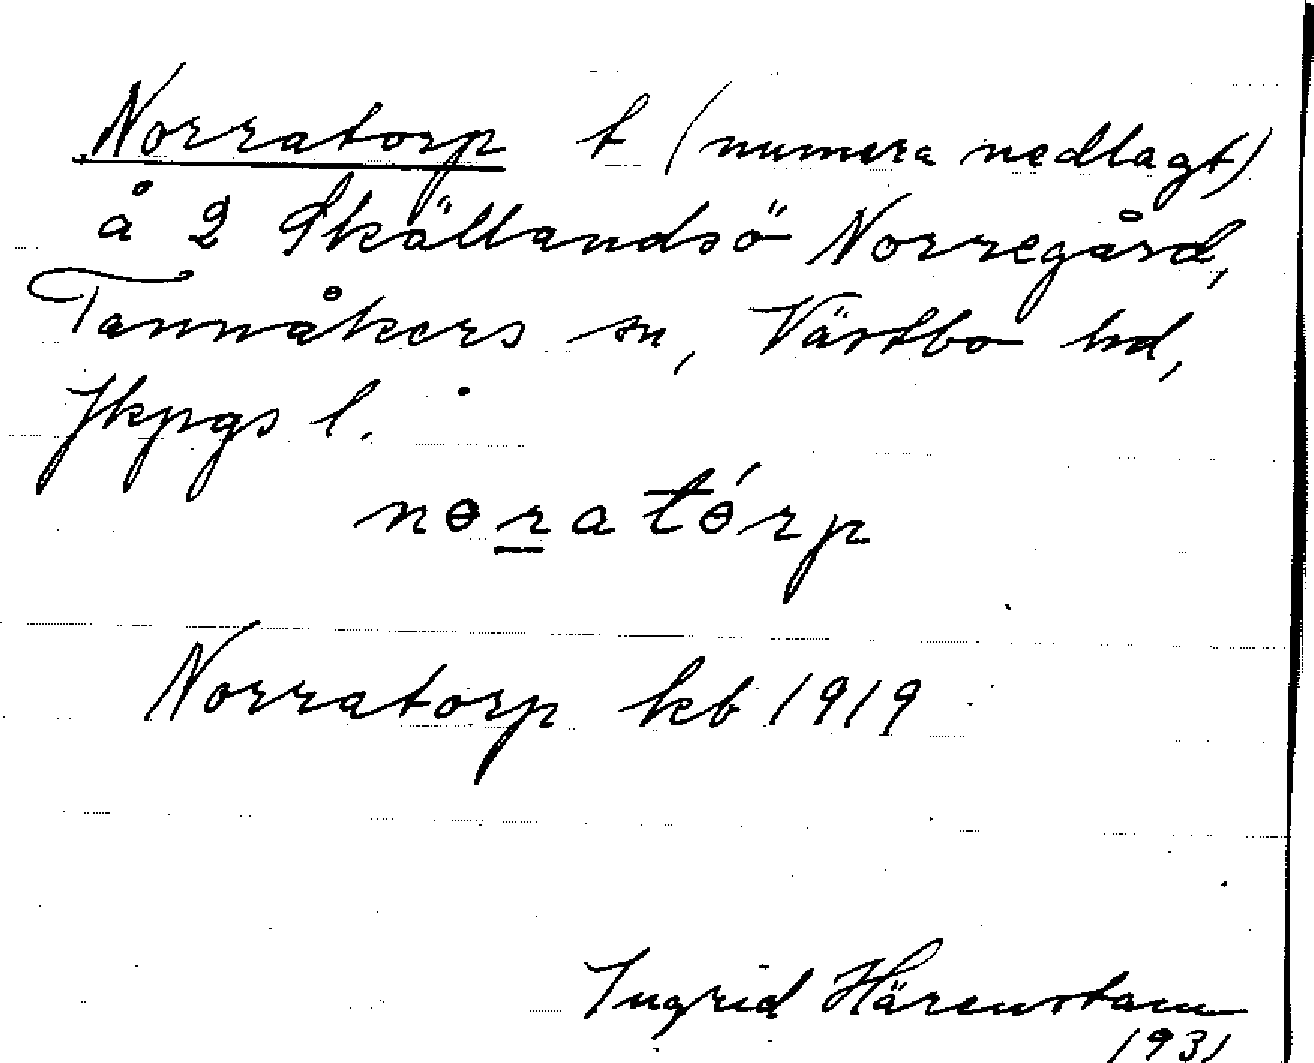 Norratorp t (numera nedlagt)
å 2 Skällandsö Norregård,
Tannåkers sn, Västbo hd,
Jkpgs l.
nɵratɵ́rp
Norratorp kb 1919
Ingrid Härenstam
1931